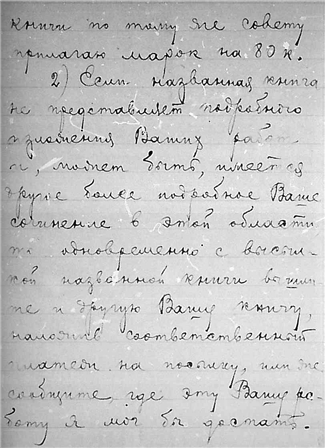 книги по тому же совету
прилагаю марок на 80 к.
2) Если названная книга
не представляет подробного
изложения Ваших работ
и, может быть, имеется
другое более подробное Ваше
сочинение в этой области
то одновременно с высыл-
кой названной книги вышли-
те и другую Вашу книгу,
наложив соответственный
платеж на посылку, или же
сообщите, где эту Вашу ра-
боту я мог бы достать.